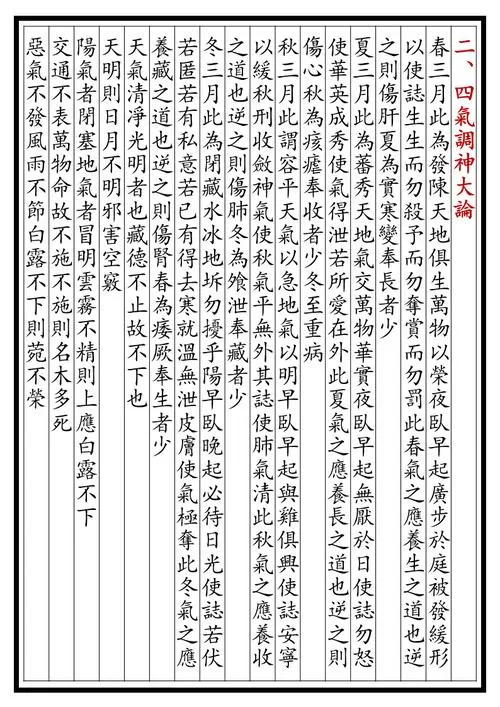 二、四氣調神大論
春三月此為發陳天地俱生萬物以榮夜臥早起廣步於庭被發緩形
以使誌生生而勿殺予而勿奪賞而勿罰此春氣之應養生之道也逆
之則傷肝夏為實寒變奉長者少
夏三月此為蕃秀天地氣交萬物華實夜臥早起無厭於日使誌勿怒
使華英成秀使氣得泄若所愛在外此夏氣之應養長之道也逆之則
傷心秋為痎瘧奉收者少冬至重病
秋三月此謂容平天氣以急地氣以明早臥早起與雞俱興使誌安寧
以緩秋刑收斂神氣使秋氣平無外其誌使肺氣清此秋氣之應養收
之道也逆之則傷肺冬為飧泄奉藏者少
冬三月此為閉藏水冰地坼勿擾乎陽早臥晚起必待日光使誌若伏
若匿若有私意若已有得去寒就溫無泄皮膚使氣極奪此冬氣之應
養藏之道也逆之則傷腎春為痿厥奉生者少
天氣清凈光明者也藏德不止故不下也
天明則日月不明邪害空竅
陽氣者閉塞地氣者冒明雲霧不精則上應白露不下
交通不表萬物命故不施不施則名木多死
惡氣不發風雨不節白露不下則菀不榮